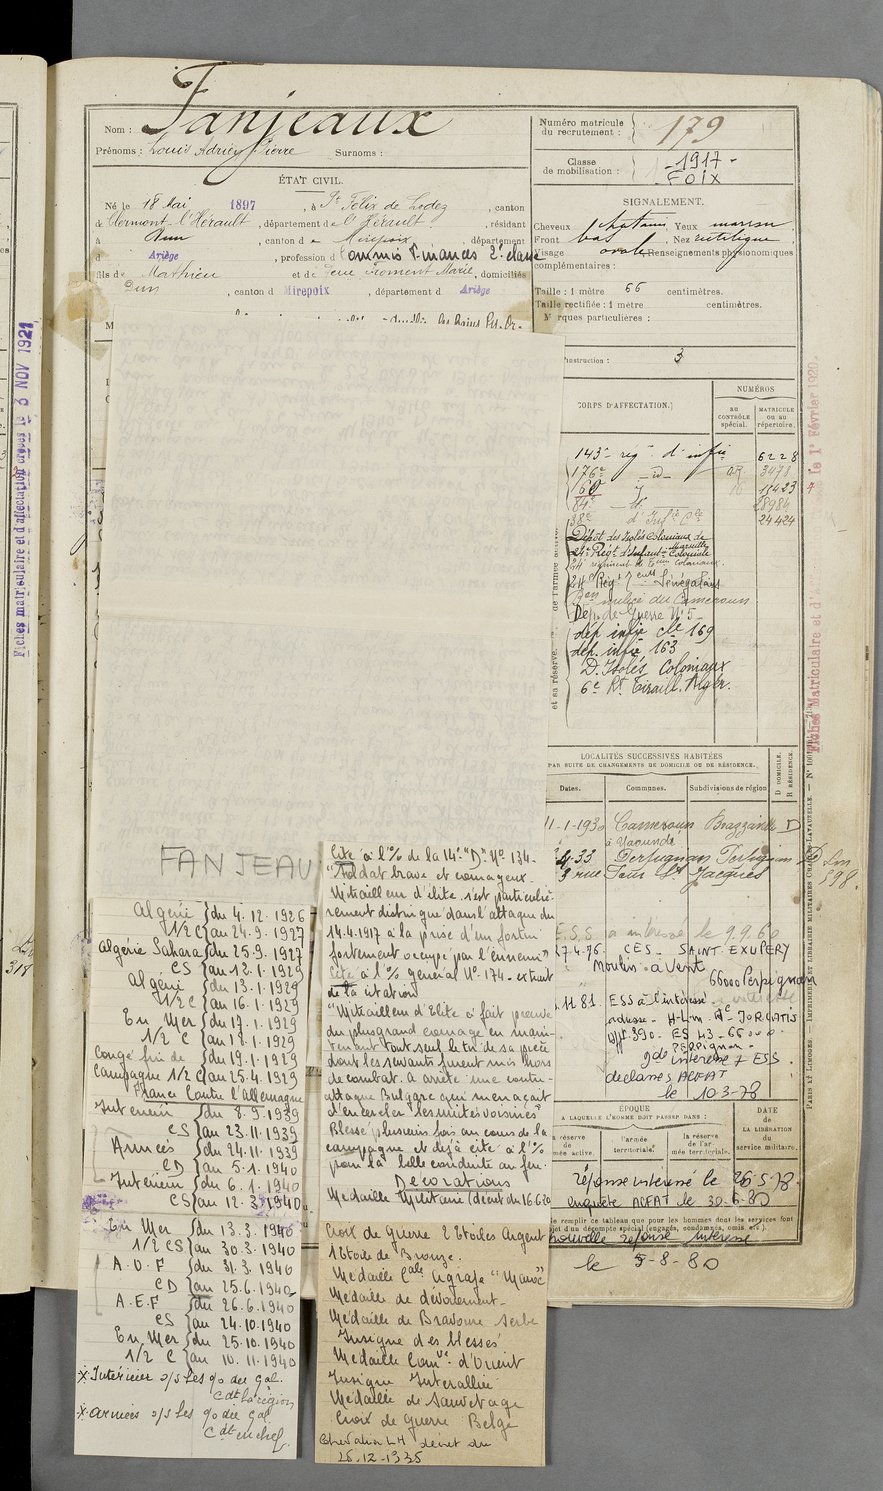 Fanjeaux
Nom :
Prénoms : Louis Adrien Pierre Surnoms :
ÉTAT CIVIL.
Né le 18 Mai 1897, à St Félix de Lodez, canton
de Clermont-l'Hérault, département de l'Hérault, résidant
à Dun, canton de Mirepoix, département
d Ariège, profession d Commis Finances 2e classe
fils de Mathieu et de feue Froment Marie, domiciliés
Dun, canton d Mirepoix, département d Ariège
Numéro matricule
du recrutement : 179
Classe
de mobilisation : -1917-
FOIX
SIGNALEMENT.
Cheveux chatains Yeux marron
Front bas, Nez rectiligne
Visage ovale Renseignements physionomiques
complémentaires :
Taille : 1 mètre 66 centimètres.
Taille rectifiée : 1 mètre centimètres.
Marques particulières :
instruction : 3
CORPS D'AFFECTATION.
NUMÉROS
au
CONTRÔLE
spécial.
MATRICULE
ou au
répertoire.
143e rég. d'infie 6228
176e -d- 3478
84e
38e d'Infie Cle 24424
Dépôt des Isolés Coloniaux de
Marseille
24e Régt d'Infant. Coloniale
24e régiment de Tirailleurs Sénégalais
Bon milice du Cameroun
Dép. de Guerre No 5
dép. infie cle 169
dép. infie 163
D. Isolés Coloniaux
6e Rt Tiraill. Alger.
et sa réserve.
de l'armée active
LOCALITÉS SUCCESSIVES HABITÉES
PAR SUITE DE CHANGEMENTS DE DOMICILE OU DE RÉSIDENCE.
Dates. Communes. Subdivisions de région
D DOMICILE.
R RÉSIDENCE.
11-1-1930 Cameroun Brazzaville D
à Yaoundé
4.33 Perpignan Perpignan D
3 rue Four St Jacques
E.S.S à intéressé le 9.9.60
27.4.76. CES - SAINT EXUPERY
Moulin-à Vent
66000 Perpignan
11 81. ESS à l'intéressé
adresse - H-L-M
PERPIGNAN
intéressé + ESS.
declarés ACFAT
le 10-3-78
ÉPOQUE
A LAQUELLE L'HOMME DOIT PASSER DANS :
DATE
DE
LA LIBÉRATION
du
service militaire.
la réserve
de l'armée active.
l'armée
territoriale.
la réserve
de l'ar-
mée territoriale.
réponse intéressé le 26-5-78
enquête ACFAT le 30-6-80
Ne remplir ce tableau que pour les hommes dont les services font
l'objet d'un décompte spécial (engagés, condamnés, omis etc.).
nouvelle réponse intéressé
le 5-8-80
Fiches matriculaire et d'affectation créées le 3 NOV 1921
Fiches Matriculaire et d'Affectation le 1er Février 1920.
PARIS ET LIMOGES. — IMPRIMERIE ET LIBRAIRIE MILITAIRES CHARLES-LAVAUZELLE.
FANJEAU
Algérie du 4.12.1926
1/2 C au 24.9.1927
Algérie Sahara du 25.9.1927
CS au 12.1.1929
Algérie du 13.1.1929
1/2 C au 16.1.1929
En Mer du 17.1.1929
1/2 C au 18.1.1929
Congé fin de du 19.1.1929
Campagne 1/2 C au 25.4.1929
France Contre l'Allemagne
Intérieur du 8.9.1939
CS au 23.11.1939
Armées du 24.11.1939
CD au 5.1.1940
Intérieur du 6.1.1940
CS au 12.3.1940
En Mer du 13.3.1940
1/2 CS au 30.3.1940
A.O.F du 31.3.1940
CD au 25.6.1940
A.E.F du 26.6.1940
CS au 24.10.1940
En Mer du 25.10.1940
1/2 C au 10.11.1940
x Intérieur o/s les go du Gal.
Cdt la région
x armées o/s les go du Gal
Cdt en chef.
Cité à l'% de la 14e "D" No 134-
"Soldat brave et courageux.
Mitrailleur d'élite, s'est particuliè-
rement distingué dans l'attaque du
14.4.1917 à la prise d'un fortin
fortement occupé par l'ennemi"
Cité à l'% général No 174 - extrait
de la citation
"Mitrailleur d'Elite a fait preuve
du plus grand courage en main-
tenant tout seul le tir de sa pièce
dont les servants furent mis hors
de combat. A arrêté une contre-
attaque Bulgare qui menaçait
d'encercler les unités voisines"
Blessé plusieurs fois au cours de la
campagne et déjà cité à l'%
pour la belle conduite au feu.
Décorations
Médaille Militaire (décret du 16.6.20
Croix de Guerre 2 Etoiles Argent
1 Etoile de Bronze.
Médaille Cale Agrafe "Maroc"
Médaille de dévouement-
Médaille de Bravoure Serbe
Insigne des blessés
Médaille Comve d'Orient
Insigne Interalliée
Médaille de Sauvetage
Croix de Guerre Belge
Chevalier LH décret du
25.12.1935